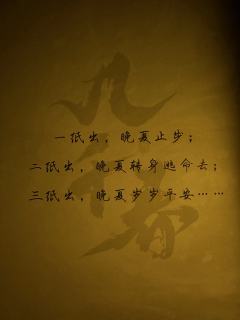 一纸出，晚夏止步；
二纸出，晚夏转身逃命去；
三纸出，晚夏岁岁平安……